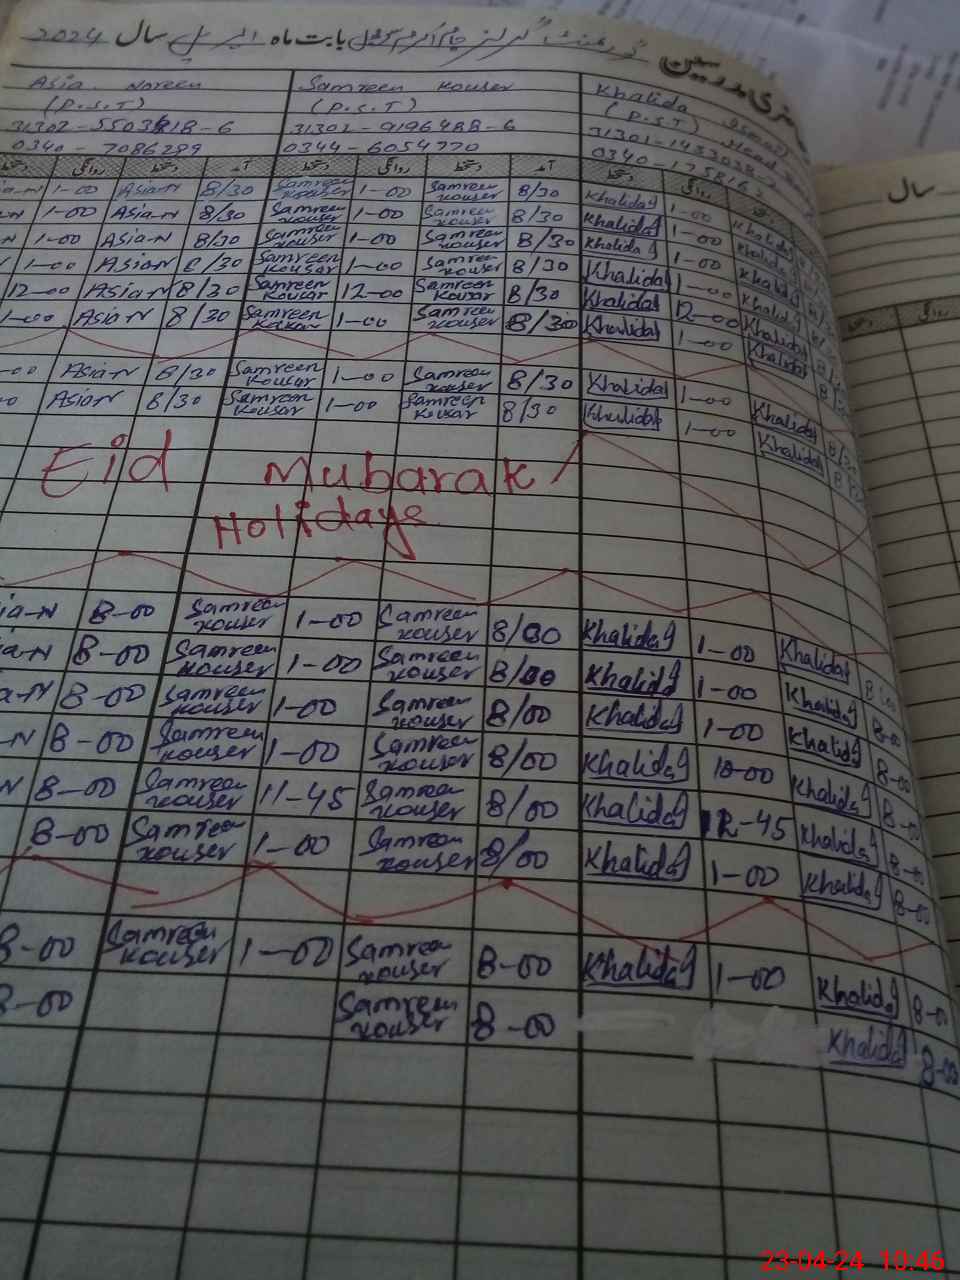 بابت ماہ اپریل سال 2024
Asia Noreen Samreen Kouser Khalida
(P.S.T) (P.S.T) (P.S.T)
31302-9196488-6
0340-7086299 0344-6054770
دستخط روانگی دستخط آمد دستخط روانگی دستخط آمد دستخط روانگی
سال
1-00 Asia-N 8/30 Samreen Kouser 1-00 Samreen Kouser 8/30 Khalida 1-00 Khalida
1-00 Asia-N 8/30 Samreen Kouser 1-00 Samreen Kouser 8/30 Khalida 1-00 Khalida
1-00 Asia-N 8/30 Samreen Kouser 1-00 Samreen Kouser 8/30 Khalida 1-00 Khalida
1-00 Asia-N 8/30 Samreen Kousar 1-00 Samreen Kouser 8/30 Khalida 1-00 Khalida
12-00 Asia-N 8/30 Samreen Kousar 12-00 Samreen Kousar 8/30 Khalida 12-00 Khalida
1-00 Asia-N 8/30 Samreen Kousar 1-00 Samreen Kouser 8/30 Khalida 1-00 Khalida
Asia-N 8/30 Samreen Kousar 1-00 Samreen Kouser 8/30 Khalida 1-00 Khalida 8/30
Asia-N 8/30 Samreen Kousar 1-00 Samreen Kousar 8/30 Khalida 1-00 Khalida
Eid Mubarak
Holidays
8-00 Samreen Kouser 1-00 Samreen Kouser 8/00 Khalida 1-00 Khalida
8-00 Samreen Kouser 1-00 Samreen Kouser 8/00 Khalida 1-00 Khalida 8-00
8-00 Samreen Kouser 1-00 Samreen Kouser 8/00 Khalida 1-00 Khalida 8-00
8-00 Samreen Kouser 1-00 Samreen Kouser 8/00 Khalida Khalida 8-00
8-00 Samreen Kouser 11-45 Samreen Kouser 8/00 Khalida 12-45 Khalida 8-00
8-00 Samreen Kouser 1-00 Samreen Kouser 8/00 Khalida 1-00 Khalida 8-00
8-00 Samreen Kouser 1-00 Samreen Kouser 8-00 Khalida 1-00 Khalida 8-00
8-00 Samreen Kouser 8-00 Khalida 8-00
23-04-24 10:46